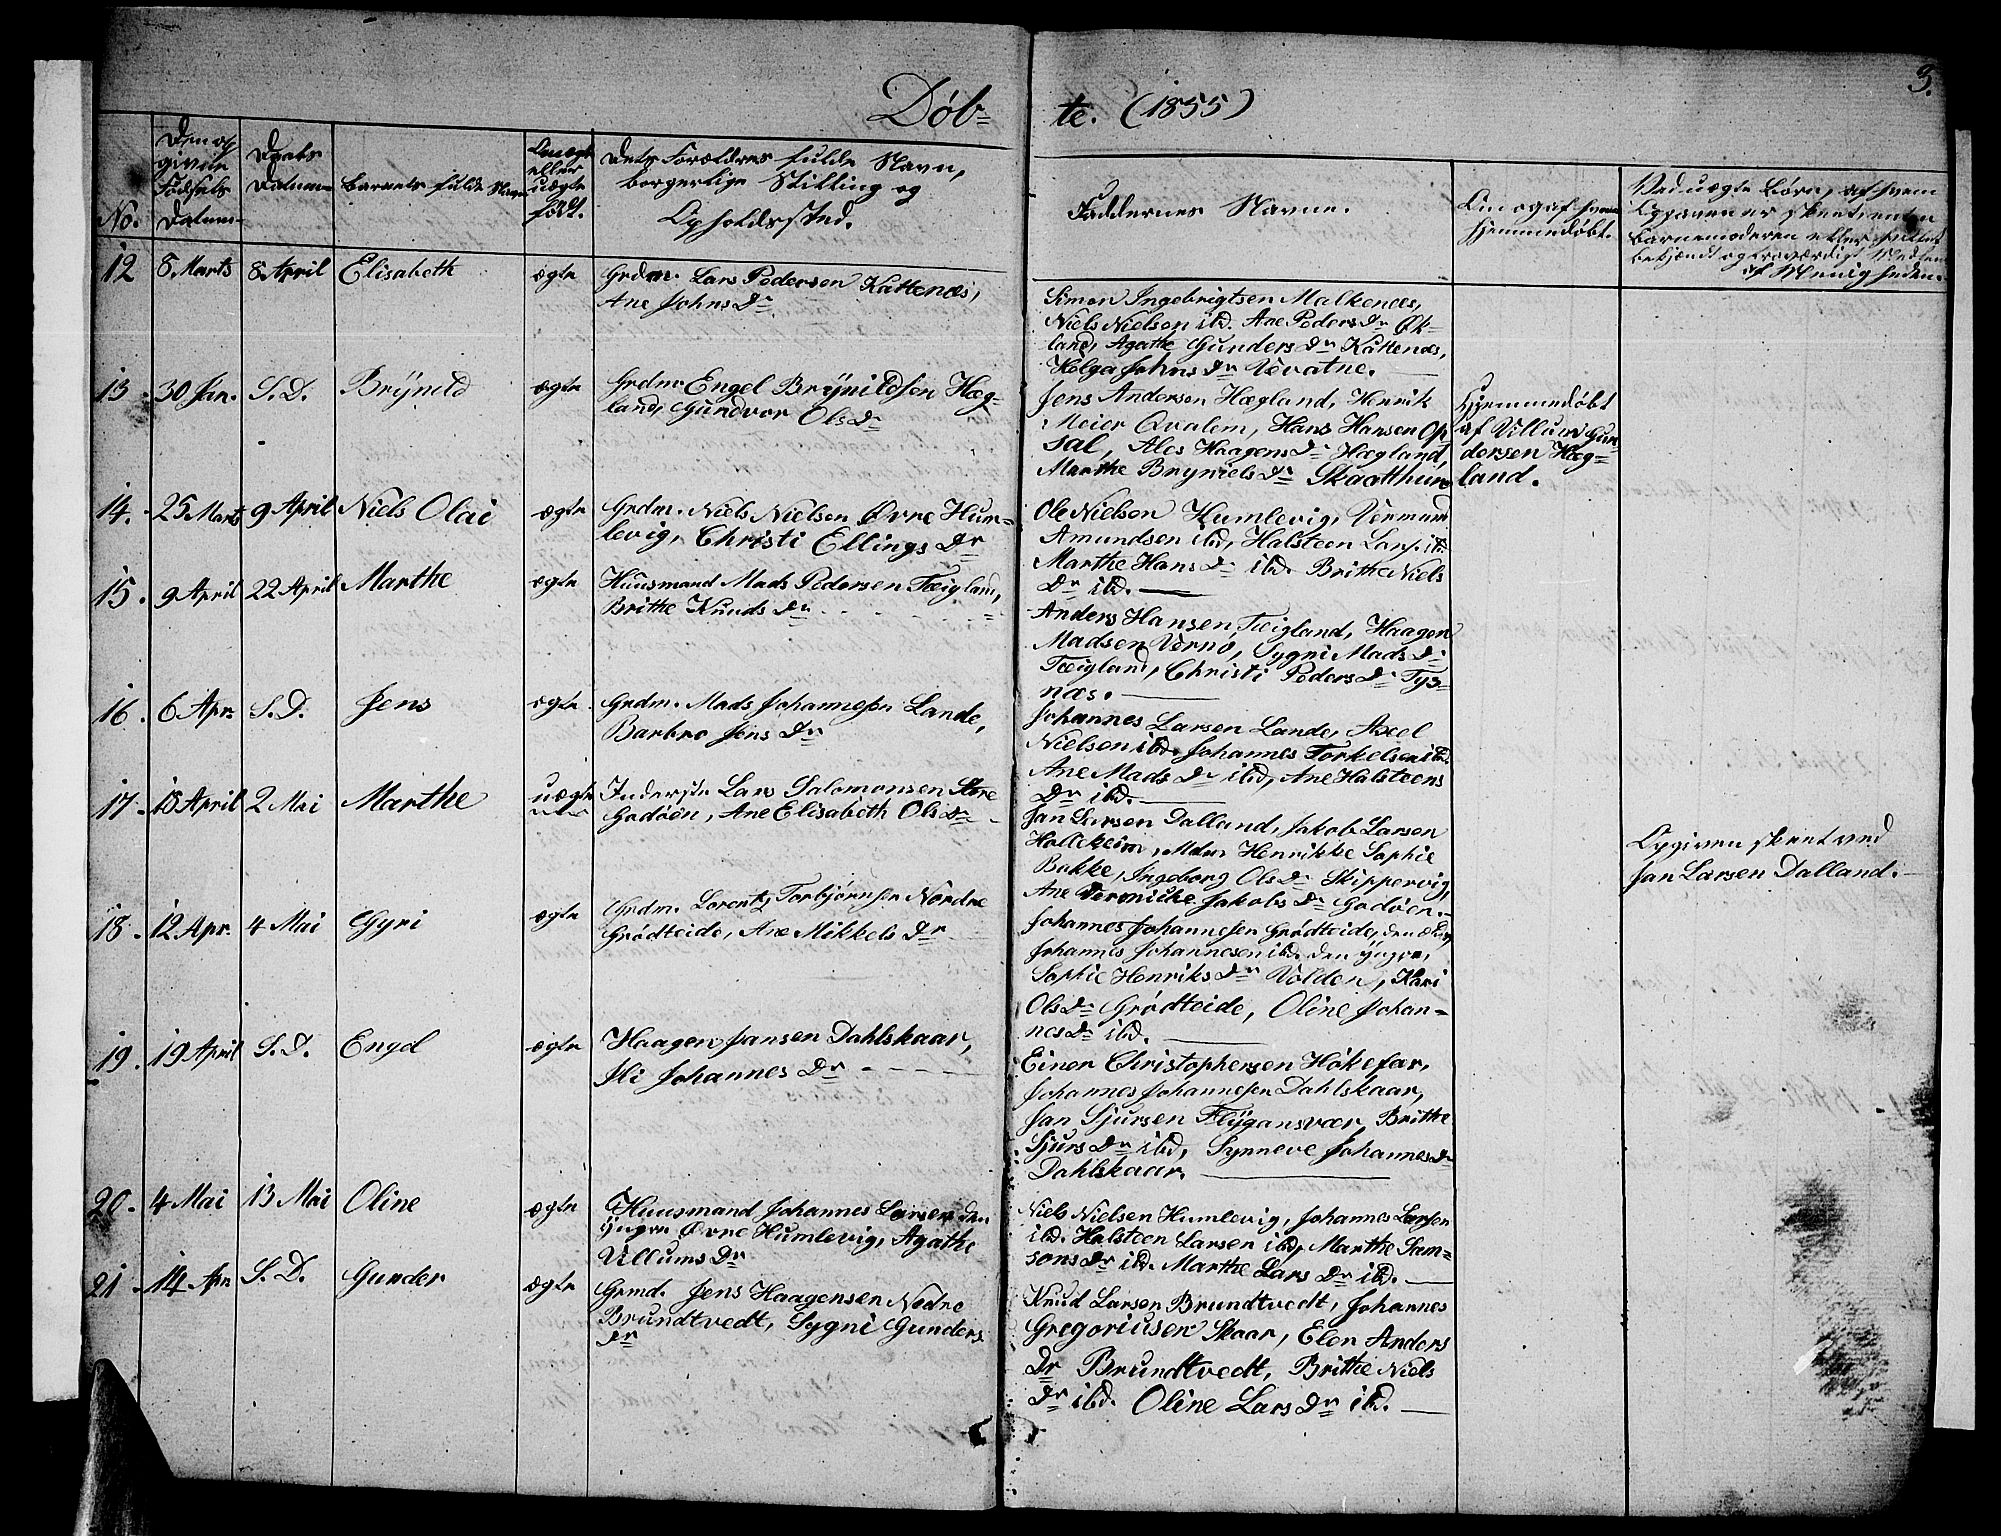 Døb=
te. (1855)
3.
No.
Den op
givne
Fødsels
Datum
Daabs
Datum
Barnets fulde Navn
Om ægte
eller
uægte
født.
Dets Forældres fulde Navn,
borgerlige Stilling og
Opholdssted.
Faddernes Navne.
Om og af hvem
hjemmedøbt.
Ved uægte Børn, af hvem
Opgaven er skeet, enten
Barnemoderen eller
bekjendt og troværdigt Medlem
af Menigheden.
12 8. Marts 8. April Elisabeth ægte Grdm. Lars Pedersen Kattenæs,
Ane Johns Dr
Simon Ingebrigtsen Malkenæs,
Niels Nielsen ibd. Ane Peders Dr Øk-
land, Agathe Gunders Dr Kattenæs,
Helga Johns Dr Vevatne.
13. 30 Jan. S. D. Brynild ægte Grdm. Engel Brynildsen Hæg-
land, Gundvor Ols Dr
Jens Andersen Hægland, Henrik
Meier Qvalem, Hans Hansen Op-
sal, Ales Haagens Dr Hægland,
Marthe Bryniels Dr Skaathun
Hjemmedøbt
af Villum Gun-
dersen Hæg-
land.
14. 25 Marts 9 April Niels Olai ægte Grdm. Niels Nielsen Øvre Hum-
levig, Christi Ellings Dr
Ole Nielsen Humlevig, Vermund
Amundsen ibd, Halsteen Lars. ibd
Marthe Hans Dr ibd. Brithe Niels
Dr ibd.
15. 9 April 22 April Marthe ægte Huusmand Mads Pedersen Teigland,
Brithe Knuds Dr
Anders Hansen Teigland, Haagen
Madsen Vernø, Sygni Mads Dr
Teigland, Christi Peders Dr Tys-
næs.
16. 6 Apr. S. D. Jens ægte Grdm. Mads Johannesen Lande,
Barbro Jens Dr
Johannes Larsen Lande, Axel
Nielsen ibd. Johannes Torkelsen ibd.
Ane Mads Dr ibd, Ane Halsteens
Dr ibd.
17. 18 April 2 Mai Marthe uægte Inderste Lars Salomonsen Store
Godøen, Ane Elisabeth Ols Dr
Jan Larsen Dalland, Jakob Larsen
Hollekeim, Mdm Henrikke Sophie
Bakke, Ingeborg Ols Dr Skippervig,
Ane Veronikke Jakobs Dr Godøen.
Opgiven skeet ved
Jan Larsen Dalland.
18. 12 Apr. 4 Mai Gyri ægte Grdm. Lorentz Torbjørnsen Nordre
Grødteide, Ane Mikkels Dr
Johannes Johannesen Grødteide, den ældre,
Johannes Johannesen ibd. den yngre,
Sophie Henriks Dr Volden, Kari
Ols Dr Grødteide, Oline Johan-
nes Dr ibd.
19. 19 April S. D. Engel ægte Haagen Jansen Dahlskaar,
Sli Johannes Dr
Einer Christophersen Hokefar,
Johannes Johannesen Dahlskaar,
Jan Sjursen Flygansvær, Brithe
Sjurs Dr ibd, Synneve Johannes Dr
Dahlskaar.
20. 4 Mai 13 Mai Oline ægte Huusmand Johannes Larsen den
yngre Øvre Humlevig, Agathe
Villums Dr
Niels Nielsen Humlevig, Johannes Larsen
ibd. Halsteen Larsen ibd, Marthe Sam-
sons Dr ibd. Marthe Lars Dr ibd.
21. 14 Apr S. D. Gunder ægte Grmd. Jens Haagensen Nedre
Brundtvedt, Sygni Gunders
Dr
Knud Larsen Brundtvedt, Johannes
Gregoriusen Skaar, Elen Anders
Dr Brundtvedt, Brithe Niels
Dr ibd. Oline Lars Dr ibd.